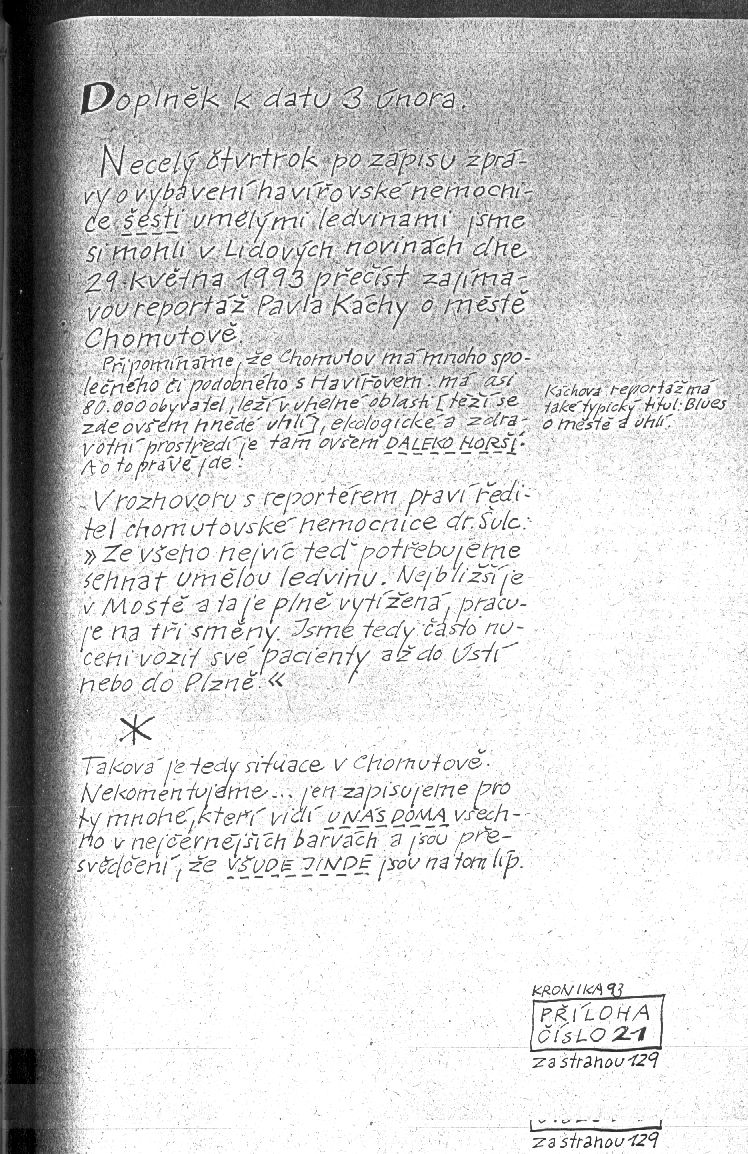 Doplněk k datu 3 února.
Necelý čtvrtrok po zápisu zprá-
vy o vybavení havířovské nemocni-
ce šesti umělými ledvinami jsme
si mohli v Lidových novinách dne
29. května 1993 přečíst zajíma-
vou reportáž Pavla Káchy o městě
Chomutově.
Připomínáme, že Chomutov má mnoho spo-
lečného či podobného s Havířovem: má asi
80.000 obyvatel, leží v uhelné oblasti [těží se
zde ovšem hnědé uhlí], ekologické a zdra-
votní prostředí je tam ovšem DALEKO HORŠÍ.
A o to právě jde!
Káchova reportáž má
také typický titul: Blues
o městě a uhlí.
V rozhovoru s reportérem praví ředi-
tel chomutovské nemocnice dr. Šulc:
» Ze všeho nejvíc teď potřebujeme
sehnat umělou ledvinu. Nejbližší je
v Mostě a ta je plně vytížená, pracu-
je na tři směny. Jsme tedy často nu-
ceni vozit své pacienty až do Ústí
nebo do Plzně. «
*
Taková je tedy situace v Chomutově.
Nekomentujeme... jen zapisujeme pro
ty mnohé, kteří vidí U NÁS DOMA všech-
no v nejčernějších barvách a jsou pře-
svědčeni, že VŠUDE JINDE jsou na tom líp.
KRONIKA 93
PŘÍLOHA
ČÍSLO 21
za stranou 129
za stranou 129